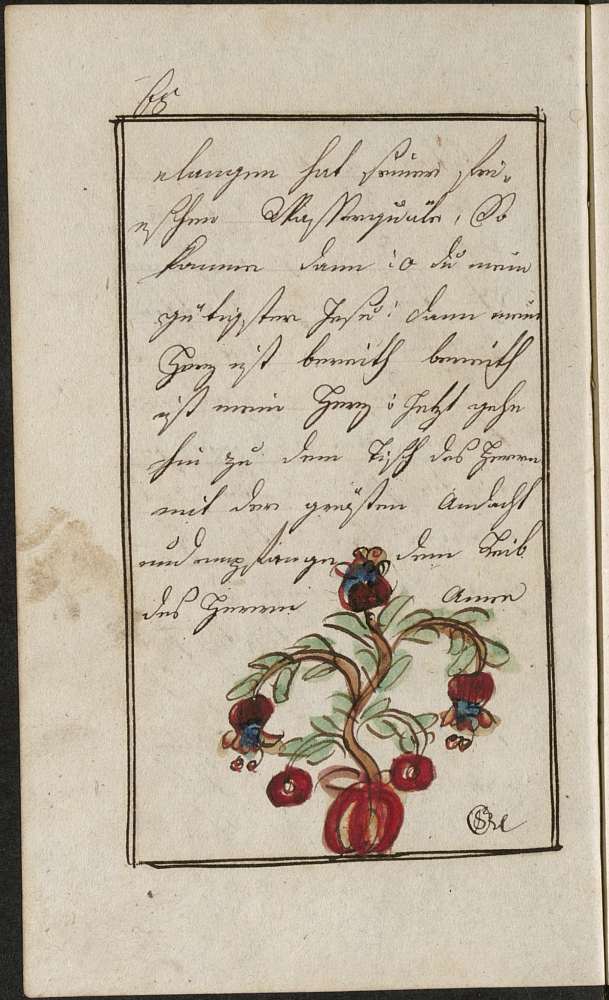 68
elangen hat seiner fri-
schen Wasserquäle, So
komme dann : o du mein
gütigster Jesu! dann mein
Herz ist bereith bereith
ist mein Herz : Jetzt gehe
hin zu dem Tisch des Herrn
mit der grösten Andacht
und empfange dem Leib
des Herrn Amen